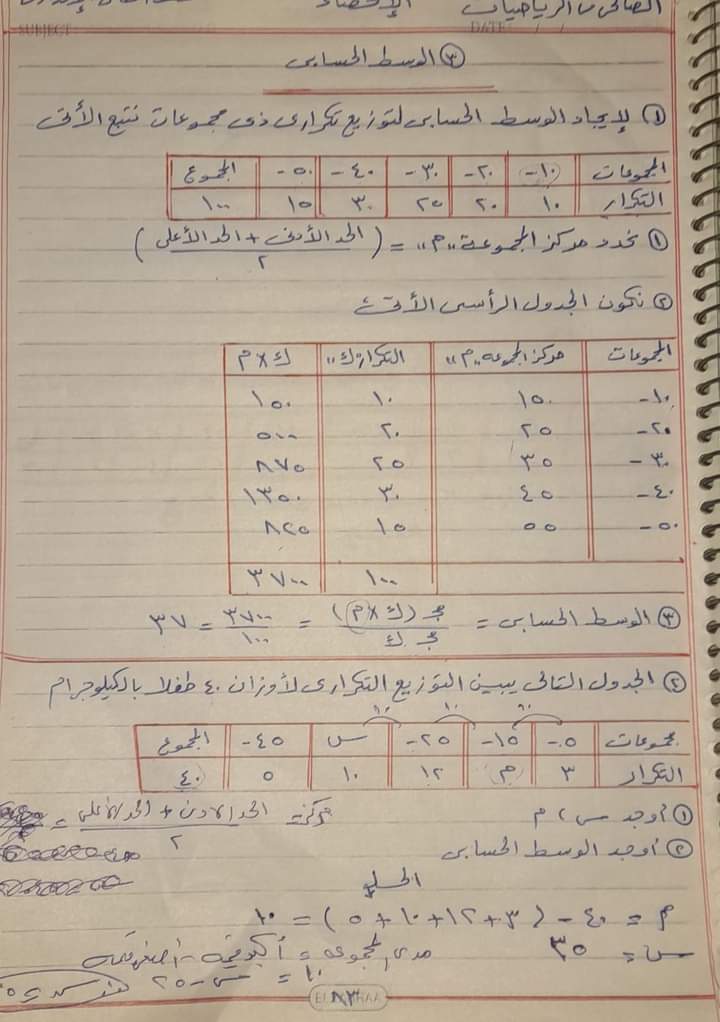 الرياضيات الإحصاء
SUBJECT: DATE: / /
٣ الوسط الحسابى
١ لإيجاد الوسط الحسابى لتوزيع تكرارى ذى مجموعات نتبع الأتى
المجموعات ١٠- ٢٠- ٣٠- ٤٠- ٥٠- المجموع
التكرار ١٠ ٢٠ ٢٥ ٣٠ ١٥ ١٠٠
١ نحدد مركز المجموعة "م" = (الحد الأدنى + الحد الأعلى / ٢)
٢ نكون الجدول الرأسى الأتى:
المجموعات مركز المجموعة "م" التكرار "ك" ك × م
١٠- ١٥ ١٠ ١٥٠
٢٠- ٢٥ ٢٠ ٥٠٠
٣٠- ٣٥ ٢٥ ٨٧٥
٤٠- ٤٥ ٣٠ ١٣٥٠
٥٠- ٥٥ ١٥ ٨٢٥
١٠٠ ٣٧٠٠
٣ الوسط الحسابى = مجـ (ك × م) / مجـ ك = ٣٧٠٠ / ١٠٠ = ٣٧
٢ الجدول التالى يبين التوزيع التكرارى لأوزان ٤٠ طفلا بالكيلوجرام
١٠ ١٠ ١٠
مجموعات ٥- ١٥- ٢٥- س ٤٥- المجموع
التكرار ٣ م ١٢ ١٠ ٥ ٤٠
١ أوجد س ، م مركز = الحد الادنى + الحد الأعلى / ٢ =
٢ أوجد الوسط الحسابى
الحل
م = ٤٠ - (٣ + ١٢ + ١٠ + ٥) = ١٠
س = ٣٥ مدى المجموعة = أكبر قيمة - أصغر قيمة
١٠ = س - ٢٥
٨٣